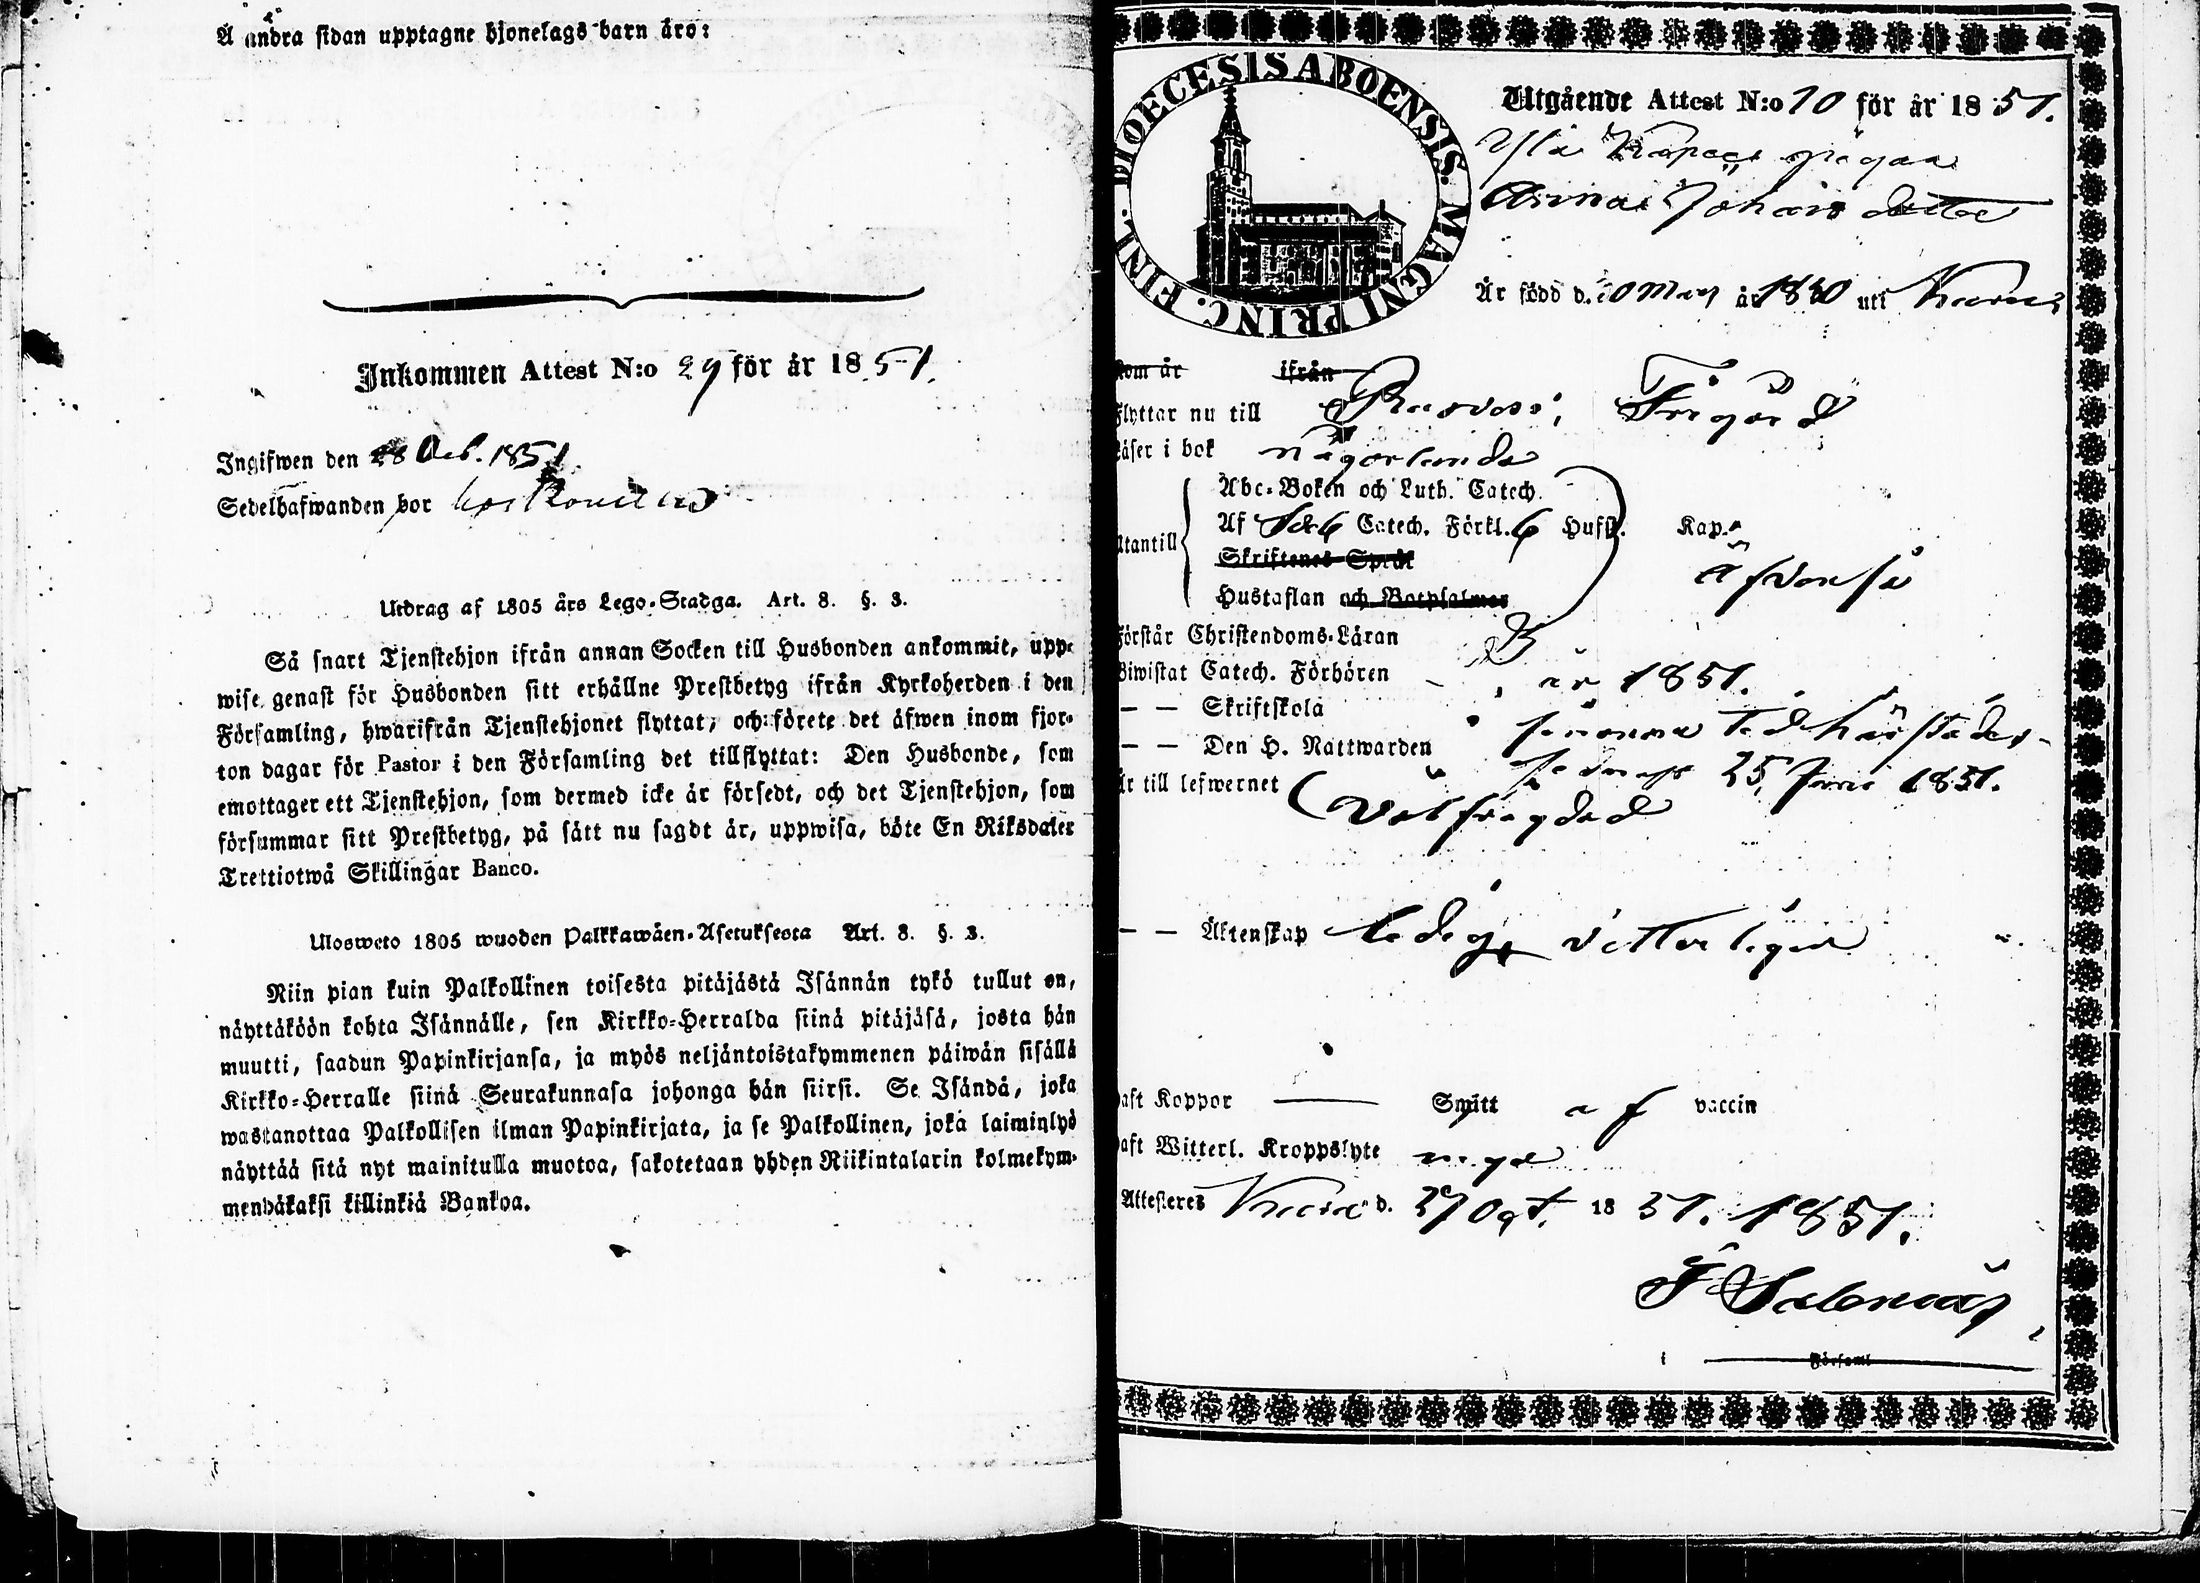 Å andra sidan upptagne hjonelags barn äro:
Inkommen Attest N:o 29 för år 1851.
Ingifwen den 28 Oct. 1851
Sedelhafwanden bor
Utdrag af 1805 års Lego-Stadga. Art. 8. §. 3.
Så snart Tjenstehjon ifrån annan Socken till Husbonden ankommit, upp-
wise genast för Husbonden sitt erhållne Prestbetyg ifrån Kyrkoherden i den
Församling, hwarifrån Tjenstehjonet flyttat, och förete det äfwen inom fjor-
ton dagar för Pastor i den Församling det tillflyttat: Den Husbonde, som
emottager ett Tjenstehjon, som dermed icke är försedt, och det Tjenstehjon, som
försummar sitt Prestbetyg, på sätt nu sagdt är, uppwisa, böte En Riksdaler
Trettiotwå Skillingar Banco.
Ulosweto 1805 wuoden Palkkawäen-Asetuksesta Art. 8. §. 3.
Niin pian kuin Palkollinen toisesta pitäjästä Isännän tykö tullut on,
näyttäköön kohta Isännälle, sen Kirkko-Herralda siinä pitäjäsä, josta hän
muutti, saadun Papinkirjansa, ja myös neljäntoistakymmenen päiwän sisällä
Kirkko-Herralle siinä Seurakunnasa johonga hän siirsi. Se Isändä, joka
wastanottaa Palkollisen ilman Papinkirjata, ja se Palkollinen, joka laiminlyö
näyttää sitä nyt mainitulla muotoa, sakotetaan yhden Riikintalarin kolmekym-
mendäkaksi killinkiä Bankoa.
DIOECESIS ABOENSIS. MAGNI PRINC. FINL.
Utgående Attest N:o 70 för år 1851.
pigan
Anna Johans dotter
Är född d. år uti
kom är ifrån
Flyttar nu till
Läser i bok någorlunda
Abc-Boken och Luth. Catech.
Af Catech. Förkl. 6 Hufst. Kap.
Utantill
Skriftenes Språk
äfvenså
Hustaflan och Botpsalmer
Förstår Christendoms-Läran
Biwistat Catech. Förhören år 1851.
— — Skriftskola
— — Den H. Nattwarden
25 Juni 1851.
Är till lefwernet
Välfrägdad
— — Äktenskap ledig, vitterligen
Haft Koppor — Smitt af vaccin
Haft Witterl. Kroppslyte
Attesteres d. 27 Oct. 1851. 1851.
i Förseml